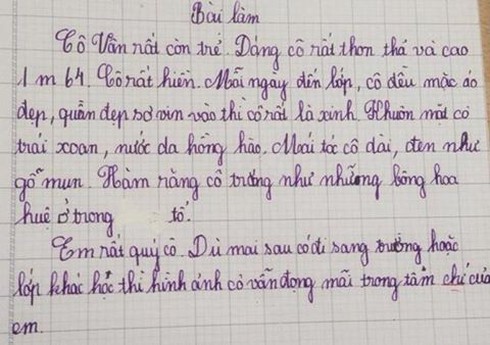 Bài làm
Cô Vân rất còn trẻ. Dáng cô rất thon thả và cao
1 m 64. Cô rất hiền. Mỗi ngày đến lớp, cô đều mặc áo
đẹp, quần đẹp sơ vin vào thì cô rất là xinh. Khuôn mặt cô
trái xoan, nước da hồng hào. Mái tóc cô dài, đen như
gỗ mun. Hàm răng cô trắng như những bông hoa
huệ ở trong tố.
Em rất quý cô. Dù mai sau cô đi sang trường hoặc
lớp khác học thì hình ảnh cô vẫn đọng mãi trong tâm chí của
em.